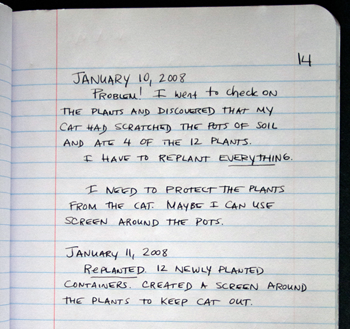 14
JANUARY 10, 2008
PROBLEM! I went to check on
THE PLANTS AND DISCOVERED THAT MY
CAT HAD SCRATCHED THE POTS OF SOIL
AND ATE 4 OF THE 12 PLANTS.
I HAVE TO REPLANT EVERYTHING.
I NEED TO PROTECT THE PLANTS
FROM THE CAT. MAYBE I CAN USE
SCREEN AROUND THE POTS.
JANUARY 11, 2008
REPLANTED. 12 NEWLY PLANTED
CONTAINERS. CREATED A SCREEN AROUND
THE PLANTS TO KEEP CAT OUT.